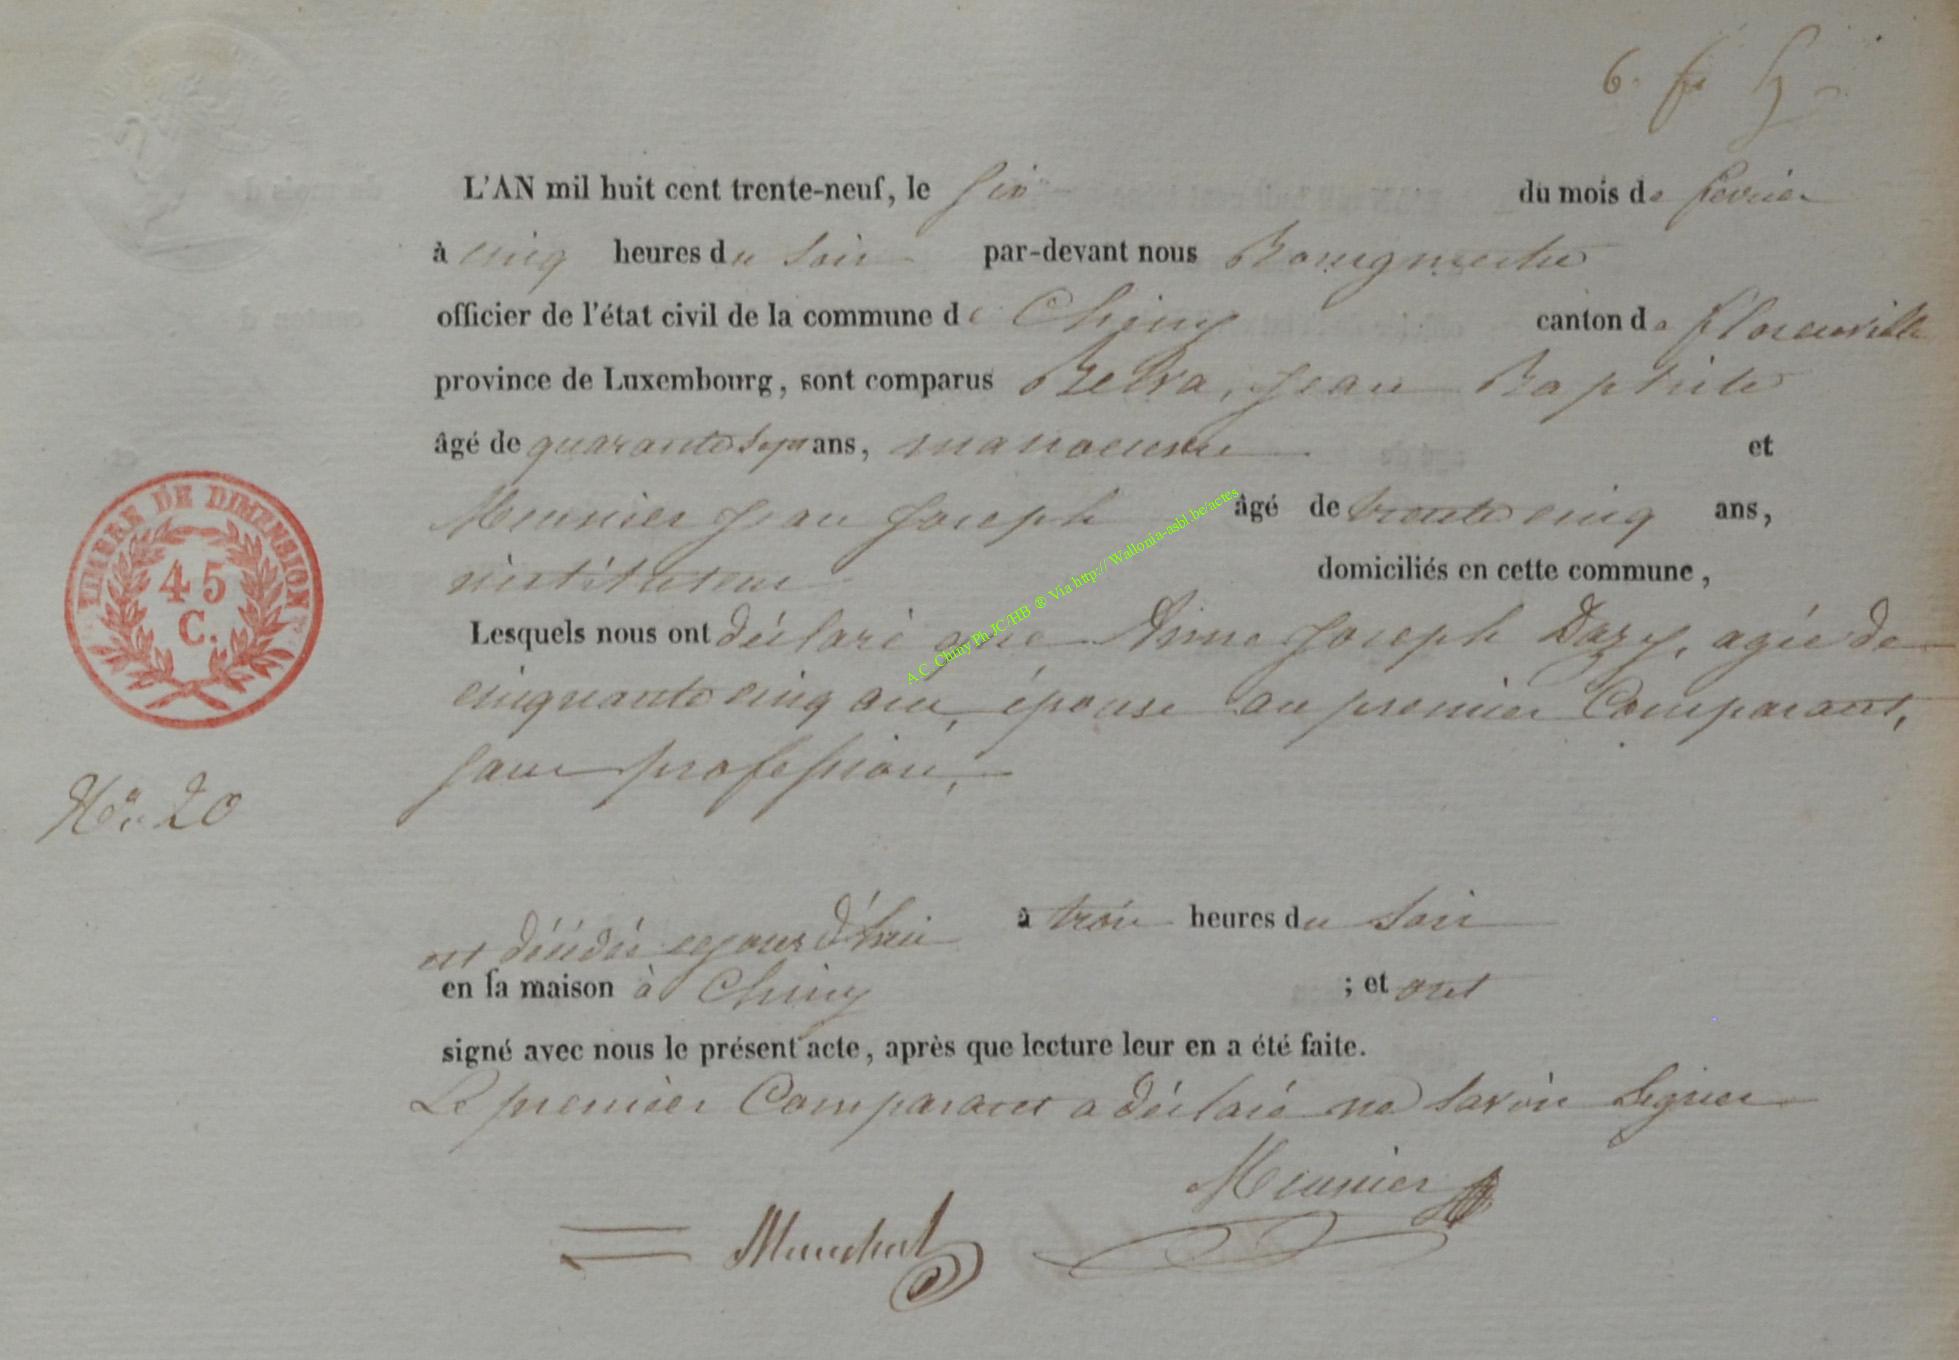 6. f. 
L'AN mil huit cent trente-neuf, le six du mois de fevrier
à cinq heures du soir par-devant nous Bourgmestre
officier de l'état civil de la commune de Chiny canton de florenville
province de Luxembourg, sont comparus Jean Baptiste
âgé de quarante sept ans, manoeuvre et
Meunier Jean Joseph âgé de trente cinq ans,
instituteur domiciliés en cette commune,
Lesquels nous ont déclaré que Anne Joseph Dazy, agée de
cinquante cinq ans, épouse au premier Comparant,
sans profession,
TIMBRE DE DIMENSION
45
C.
No. 20
est décédée cejourd'hui à trois heures du soir
en sa maison à Chiny ; et ont
signé avec nous le présent acte, après que lecture leur en a été faite.
Le premier Comparant a déclaré ne savoir signer
Meunier
A.C. Chiny Ph JC/HB ® Via http:// Wallonia-asbl.be/actes